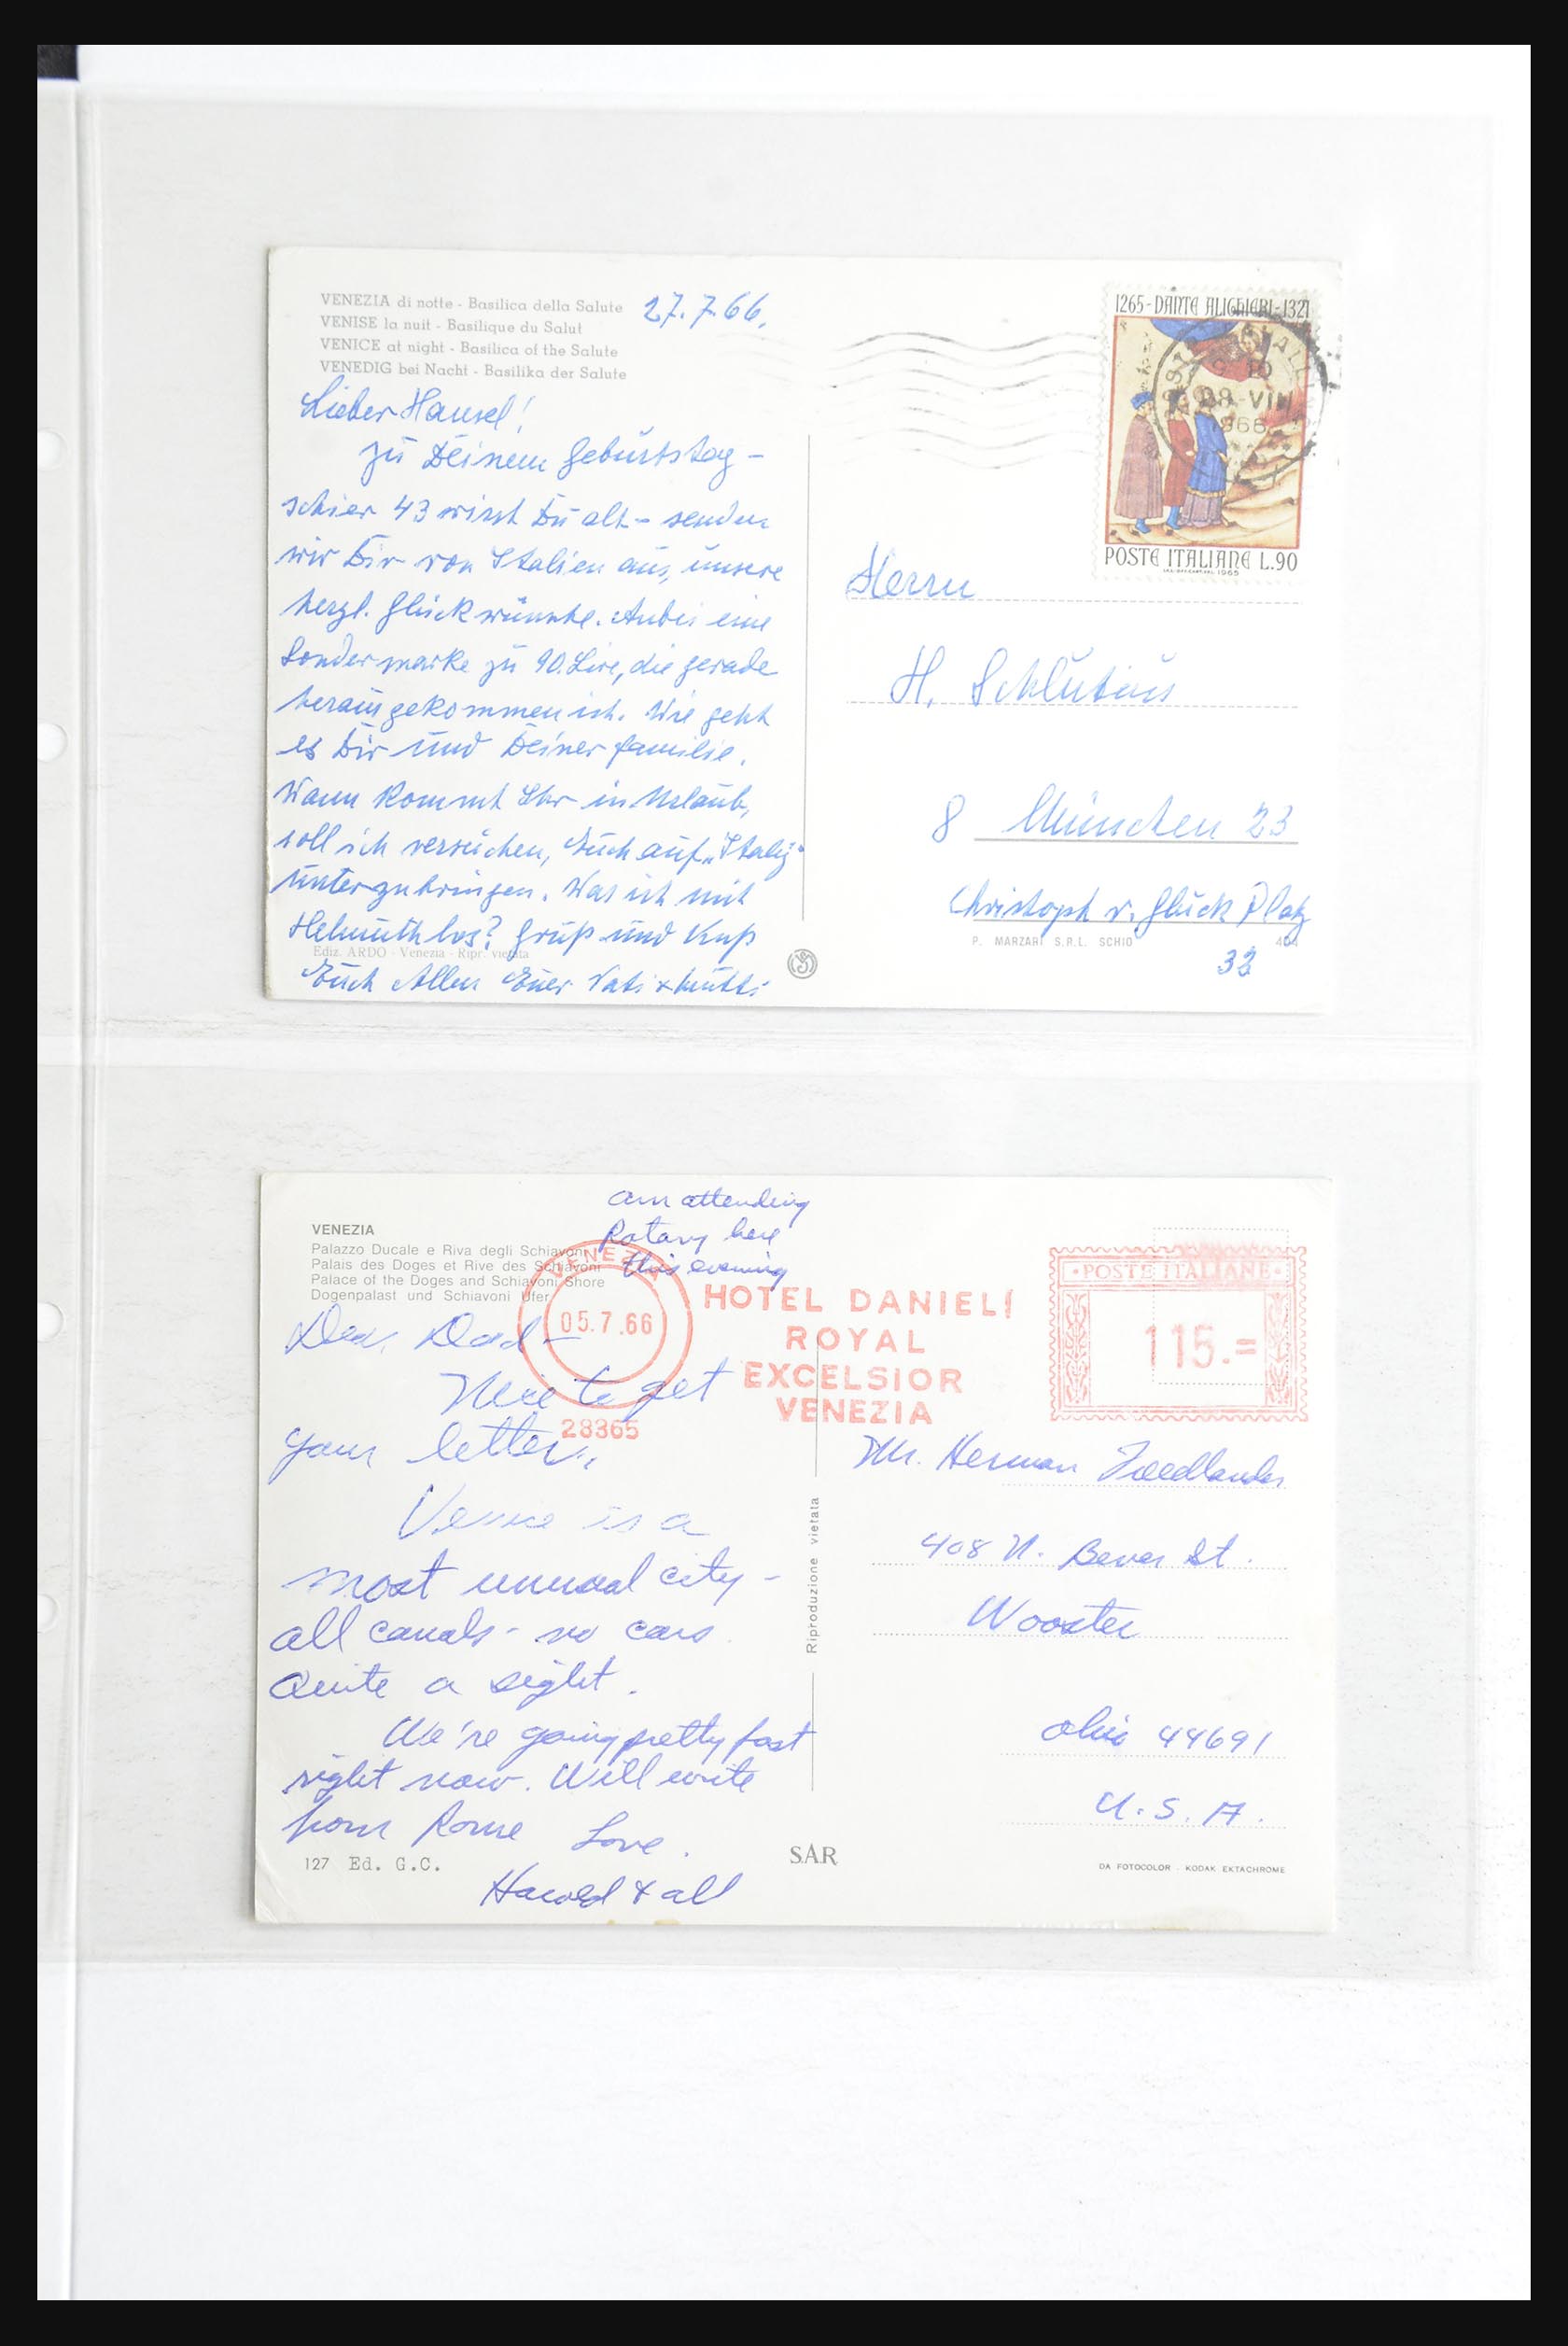 VENEZIA di notte - Basilica della Salute
VENISE la nuit - Basilique du Salut
VENICE at night - Basilica of the Salute
VENEDIG bei Nacht - Basilika der Salute
27.7.66.
Lieber Hansel!
zu Deinem Geburtstag -
schier 43 wirst Du alt - senden
wir Dir von Italien aus, unsere
herzl. Glückwünsche. Anbei eine
Sondermarke zu 90.Lire, die gerade
herausgekommen ist. Wie geht
es Dir und Deiner Familie.
Wann kommt Ihr in Urlaub,
soll ich versuchen, Euch auf „Italy"
unterzubringen. Was ist mit
Helmuth los? Gruß und Kuß
Euch Allen Euer Vati + Mutti
Ediz. ARDO - Venezia - Ripr. vietata
1265-DANTE ALIGHIERI-1321
9-10
28-VII
1966
POSTE ITALIANE L.90
1965
Herrn
H. Schlutius
8 München 23
Christoph v. Glück Platz
32
P. MARZARI S.R.L. SCHIO
404
am attending
Rotary here
this evening
VENEZIA
Palazzo Ducale e Riva degli Schiavoni
Palais des Doges et Rive des Schiavoni
Palace of the Doges and Schiavoni Shore
Dogenpalast und Schiavoni Ufer
VENEZIA
05.7.66
28365
HOTEL DANIELI
ROYAL
EXCELSIOR
VENEZIA
POSTE ITALIANE
115.=
Dear Dad -
Nice to get
your letter.
Venice is a
most unusual city -
all canals - no cars.
Quite a sight.
We're going pretty fast
right now. Will write
from Rome Love.
Harold & all
127 Ed. G.C.
Riproduzione vietata
SAR
Mr. Herman Freedlander
408 N. Bever St.
Wooster
Ohio 44691
U.S.A.
DA FOTOCOLOR - KODAK EKTACHROME